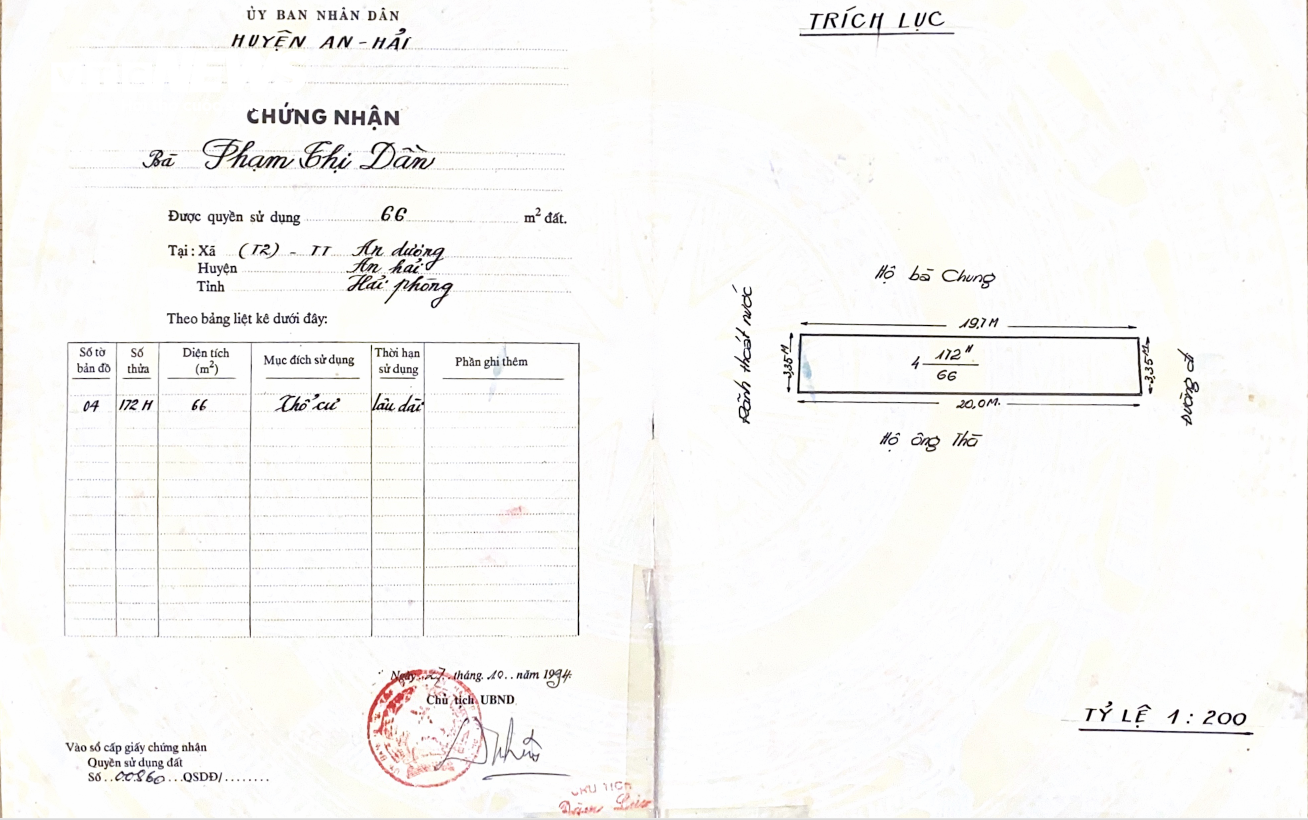 ỦY BAN NHÂN DÂN
HUYỆN AN - HẢI
CHỨNG NHẬN
Bà Phạm Thị Dần
Được quyền sử dụng 66 m² đất.
Tại : Xã (T2) - TT An dương
Huyện An hải
Tỉnh Hải phòng
Theo bảng liệt kê dưới đây:
Số tờ bản đồ Số thửa Diện tích (m²) Mục đích sử dụng Thời hạn sử dụng Phần ghi thêm
04 172 H 66 Thổ cư lâu dài
Ngày 27 tháng 10 năm 1994
Chủ tịch UBND
Vào sổ cấp giấy chứng nhận
Quyền sử dụng đất
Số 00860 QSDĐ/
CHỦ TỊCH
TRÍCH LỤC
Hộ bà Chung
Rãnh thoát nước
19,7 M
3,35 M
4 172 H
66
3,35 M
20,0 M.
Đường đi
Hộ ông Thà
TỶ LỆ 1 : 200